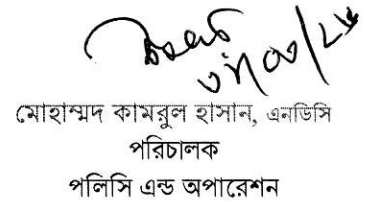 মোহাম্মদ কামরুল হাসান, এনডিসি
পরিচালক
পলিসি এন্ড অপারেশন